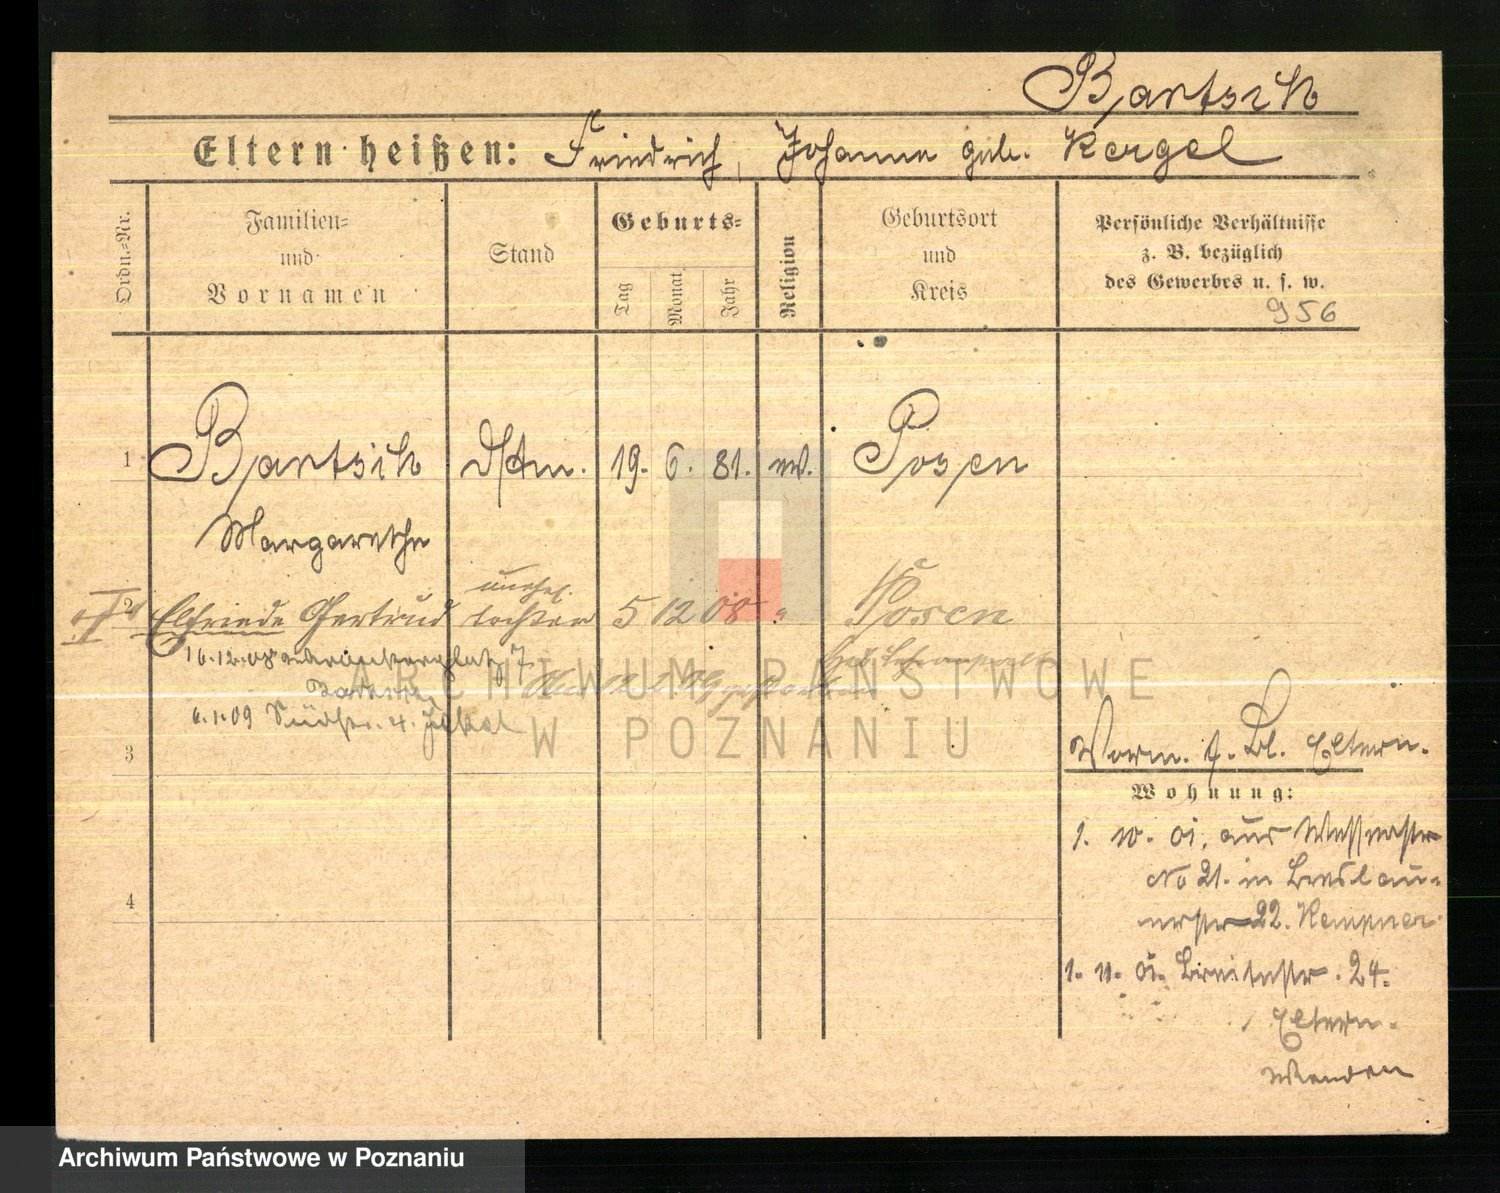 Bartsch
Eltern heißen: Friedrich, Johanna geb. Kergel
Ordn.-Nr.
Familien-
und
Vornamen
Stand
Geburts-
Tag
Monat
Jahr
Religion
Geburtsort
und
Kreis
Persönliche Verhältnisse
z. B. bezüglich
des Gewerbes u. s. w.
956
1 Bartsch 19. 6. 81. Posen
Margarethe
unehel.
2 Elfriede Gertrud Tochter 5 12 08 Posen
16.12.08 7
6.1.09 Südstr. 4.
ARCHIWUM PAŃSTWOWE
W POZNANIU
3
4
Eltern.
Wohnung:
1. 10. 01. aus
No 21. in Breslau-
erstr 22. Kempner
1. 11. 01. Breitestr. 24.
Eltern.
Archiwum Państwowe w Poznaniu